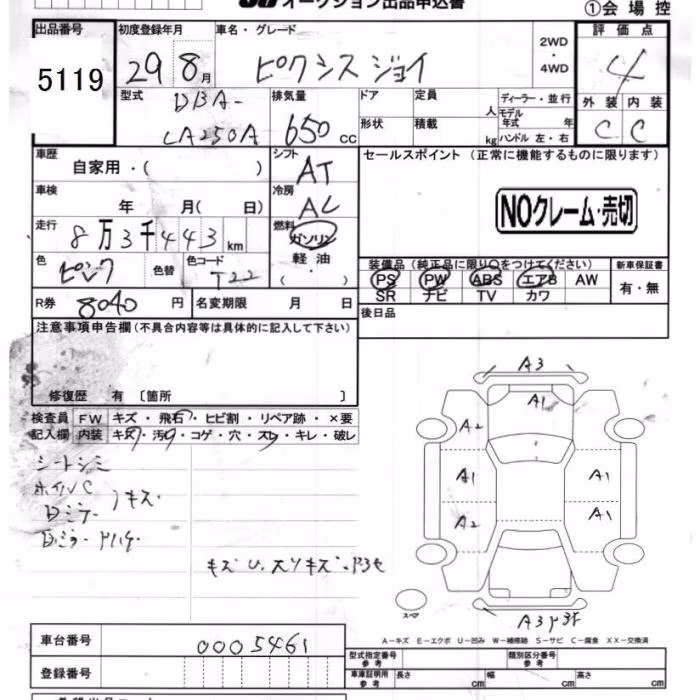 オークション出品申込書
①会場控
出品番号 初度登録年月 車名・グレード 2WD・4WD 評価点
5119 29 8月 ピクシスジョイ 4
型式 DBA-LA250A 排気量 650cc ドア 定員 人 ディーラー・並行 外装 内装
形状 積載 kg モデル年式 年 ハンドル 左・右 C C
車歴 自家用・( ) シフト AT セールスポイント (正常に機能するものに限ります)
車検 年 月( 日) 冷房 AC
NOクレーム・売切
走行 8万3千443km 燃料 ガソリン 軽油 ( )
色 ピンク 色替 色コード T22
装備品(純正品に限り○をつけてください) 新車保証書
PS PW ABS エアB AW 有・無
SR ナビ TV カワ
R券 8040円 名変期限 月 日 後日品
注意事項申告欄(不具合内容等は具体的に記入して下さい)
修復歴 有 〔箇所 〕
検査員 FW キズ・飛石・ヒビ割・リペア跡・×要
記入欄 内装 キズ・汚れ・コゲ・穴・スレ・キレ・破レ
シートシミ
ホイルC
キズ
A3
A1
A2
A1 A1
A2 A1
スペア
A3
A-キズ E-エクボ U-凹み W-補修跡 S-サビ C-腐食 XX-交換済
車台番号 0005461
型式指定番号 参考 類別区分番号 参考
登録番号 車庫証明用 参考 長さ cm 幅 cm 高さ cm